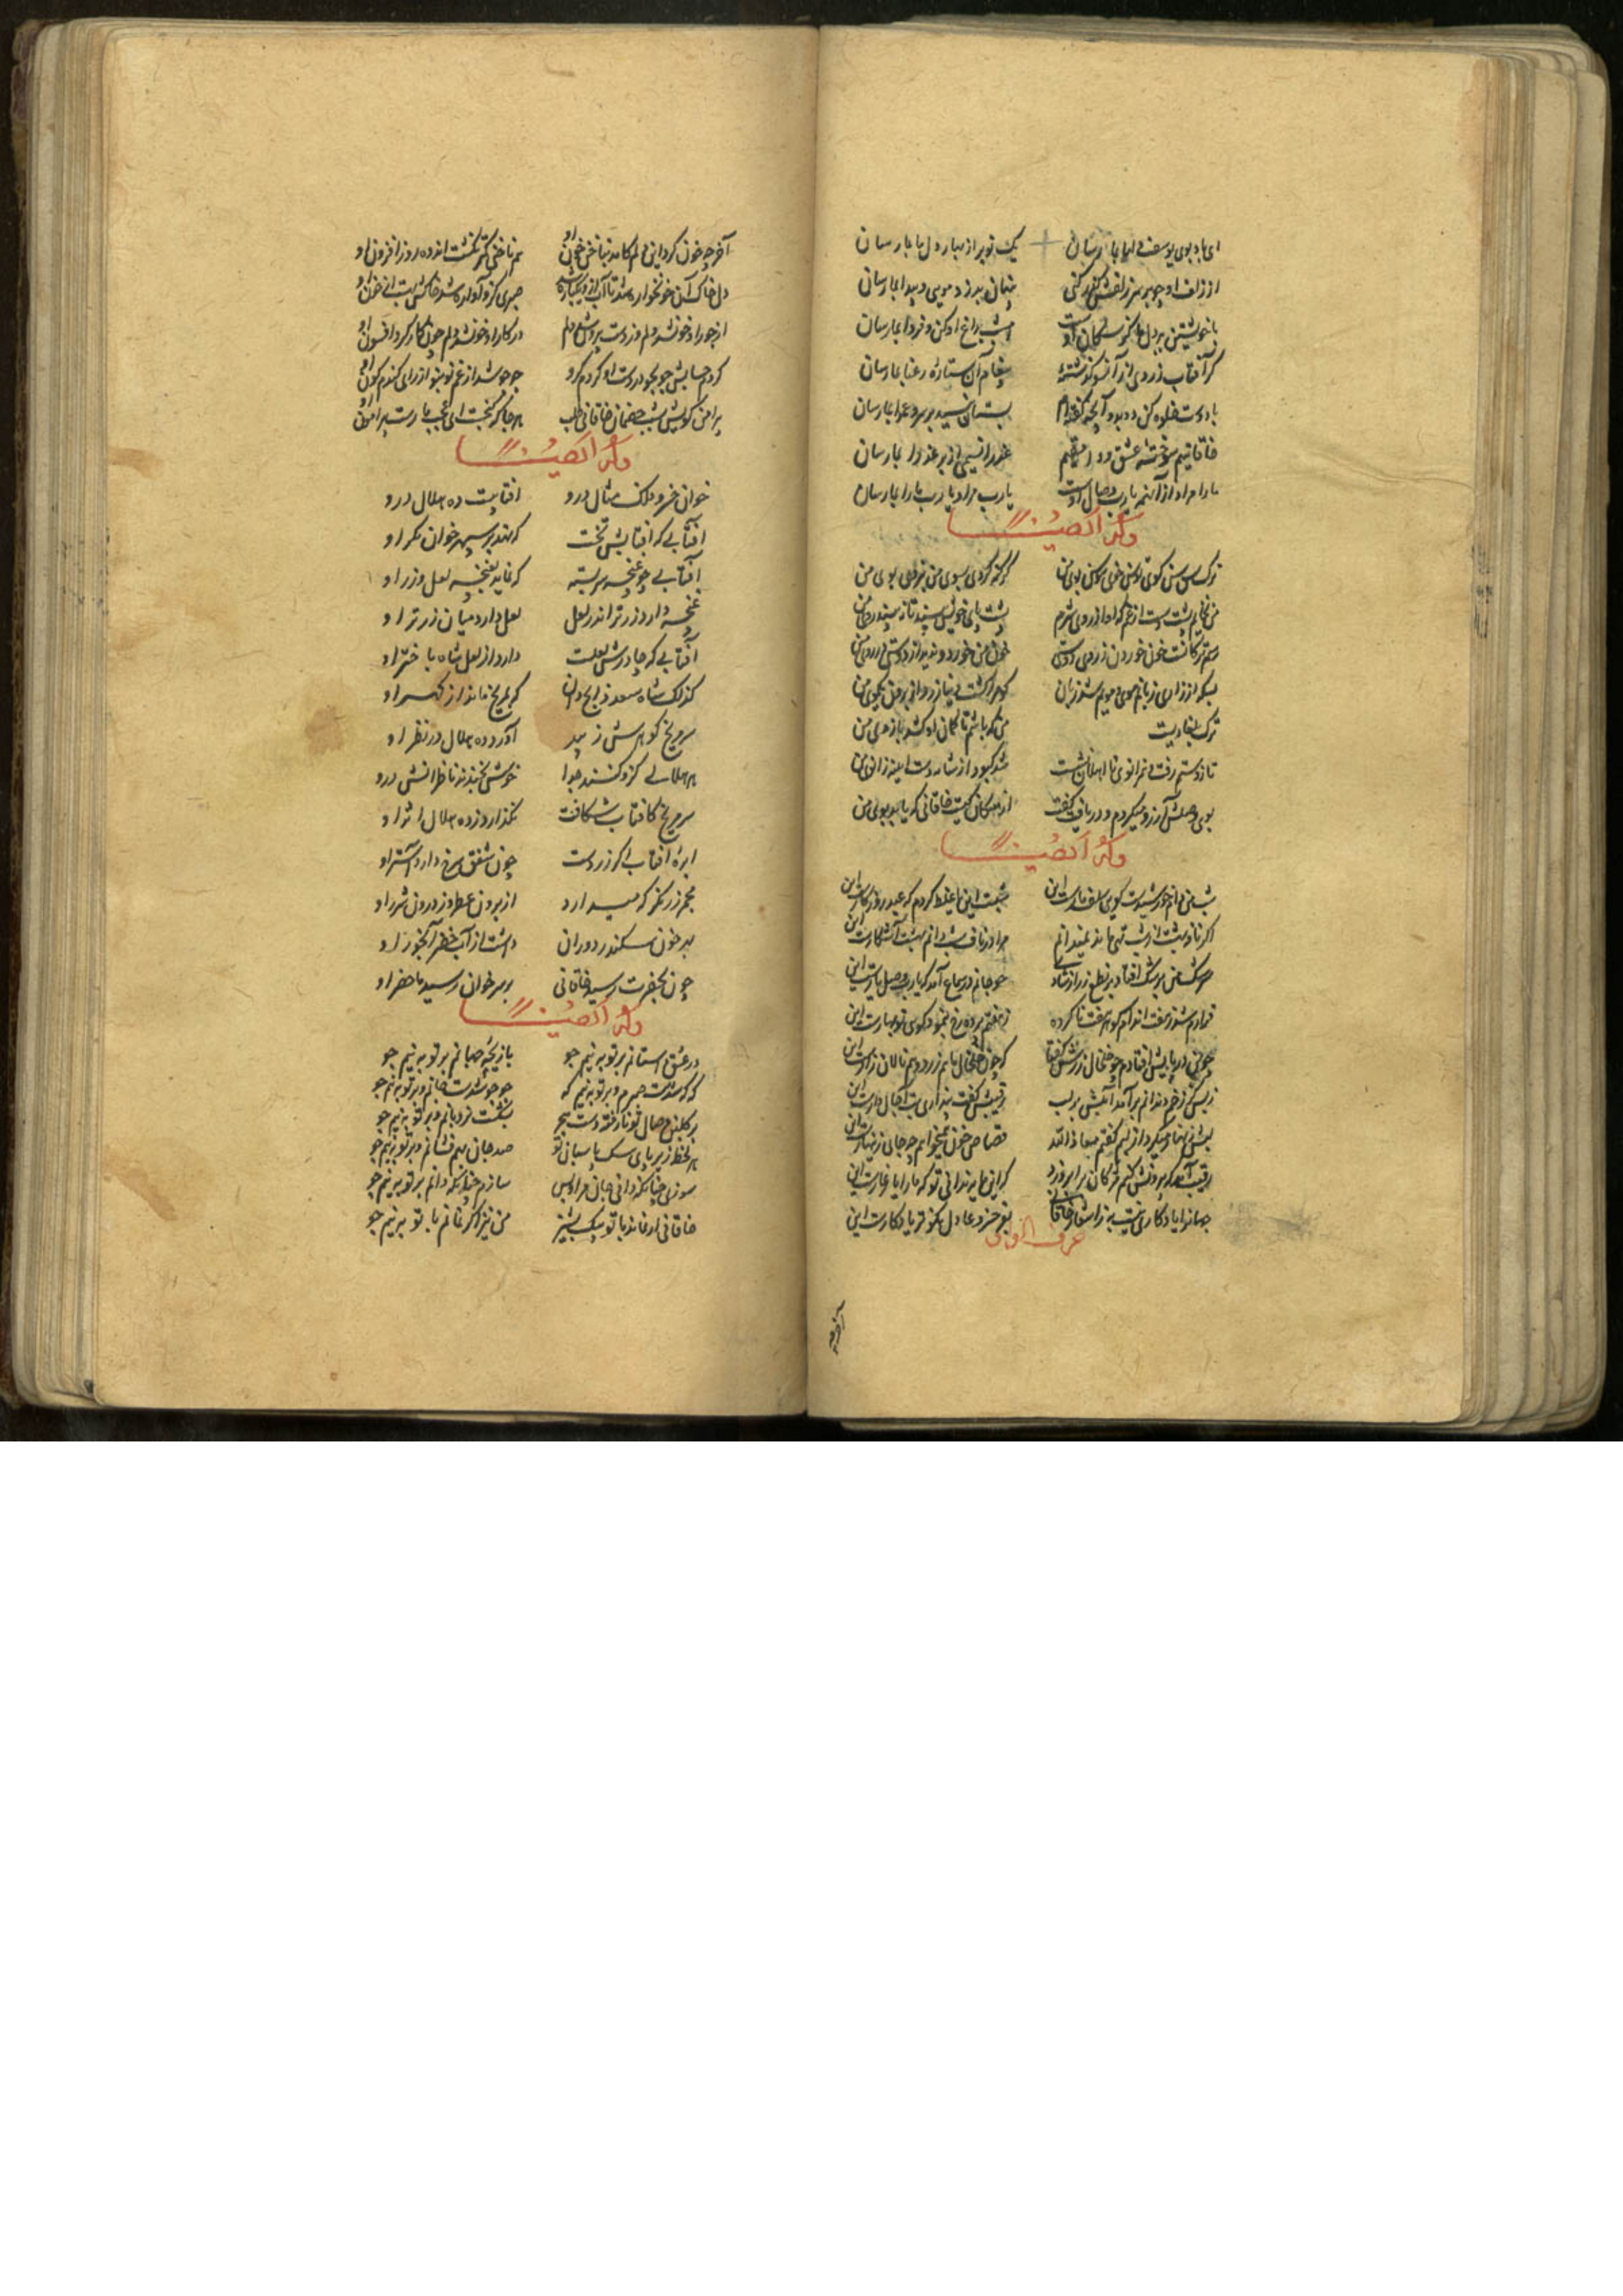 ای باد بوی یوسف دلها بما رسان یک نوبر از بهار دل ما بما رسان
از زلف او چو بر سر زلفش گذر کنی پنهان بدزد مویی و پیدا بما رسان
با خویشتن ببر دل ما کز سگان اوست امشب بداغ او کن و فردا بما رسان
گر آفتاب زردی از آنسو گذشتهٔ پیغام آن ستارهٔ رعنا بما رسان
با دوست خلوه کن دو بدو آنچه گفته‌ام بستان نسید برسر و عمدا بما رسان
خاقانییم سوختهٔ عشق وامقیم عذرا نسیمی از بر عذرا بما رسان
ما را مراد از آنهمه یارب وصال اوست یارب مراد یارب ما را بما رسان
وله ایضا
ترک سن سن گوی توسن خوی سوسن بوی من گر نگه کردی بسوی من نبودی سوی من
من نخایم پشت دست از غم که او از روی شرم پشت پای خویش بیند تا نبیند روی من
رسم ترکانست خون خوردن ز روی دوستی خون من خورد و ندید از دوستی در روی من
بسکه از زاری زبانم موی و مویم شد زبان کو مرا کشت و نیازرد از برون یک موی من
ترک بلغاریست من که باشم تا کمان او کشد بازوی من
تا ز دستم رفت و همزانوی نااهلان نشست شد کبود از شانهٔ دست آینهٔ زانوی من
بوی وصلش آرزو میکردم و دریافت گفت از سگان کیست خاقانی که یابد بوی من
وله ایضا
شب من دام خورشیدست گویی زلف یارست این شبست این یا غلط کردم که عید روزگارست این
اگر ناف بهشت از شب تهی ماند نمیدانم مرا در ناف شب دانم بهشت آشکارست این
سرشک من برشک افتاد بر نطع زر از شادی چو جانم در سماع آمد که یارب وصل یارست این
فرادم شور هفت اندام کو هر هفت ناکرده ز هفتم پرده رخ بنمود گویی نوبهارست این
چو من در پایش افتادم چو خلخال زرش گفتا که چون خلخال ما هم زرد و هم نالان و زارست این
ز بس کز زخم دندانم برآمد آبلش بر لب رقیبش گفت پنداری لب تبخاله دارست این
لبش دندانها میکرد از لبم گفتم معاذ الله قصاص خون نمیخواهم چه جای زینهارست این
رقیب آمد که بیرونش کنم مژگان بر ابرو زد که این ما به ندانی تو که ما را یار غارست این
جهانرا یادگاری نیست به ز اشعار خاقانی بفر خسرو عادل نکوتر یادگارست این
حرف الواو
آخر چه خون کرد این دلم کامد بناخن خون او هم ناخنی کمتر نگشت اندوه روز افزون او
دل خاک آن خونخواره شد تا آب او یکباره شد صبری کزو آواره شد خاکش نشست از خون او
از جور او خون شد دلم وز دست بیرون شد دلم در کار او خون شد دلم چون کار کرد افسون او
کردم حسابش جو بجو در دست او کردم گرو جو جو شد از غم نو بنو از رای گندم گون او
پیرامن کویش بشب خصمان خاقانی طلب هر جا که گنجست ای عجب مارست پیرامون او
وله ایضا
خوان خسرو فلک مثال درو افتابست ده هلال درو
افتابی که افتابش پخت که نهد بر سپهر خوان مگر او
افتابی چو غنچه سر بسته که نماید بغنچه لعل و زر او
غنچه دارد زر تر اندر لعل لعل دارد میان زر تر او
آفتابی که چادرش لعلست دارد از لعل شاه باختر او
گزلک شاه سعد ذابح دان که بمریخ ماند از گهر او
مریخ گوهرش زیبد آورد ده هلال در نظر او
هر هلالی کزو کنند جدا خوش بخندند ناظرانش درو
مریخ کافتاب شکافت نگذارد ز ده هلال اثر او
ابرهٔ افتاب اگر زردست چون شفق سرخ دارد آستر او
مجمر زر نگر که میدارد از برون عطر و ز درون شرر او
بهر خون سکندر دوران داشت از آب خضر آبخور او
چون بحضرت رسید خاقانی بر سر خوان رسید ماحضر او
وله ایضا
در عشق داستانم و بر تو به نیم جو بازیچهٔ جهانم و بر تو به نیم جو
که که شدست صبرم و بر تو به نیم که جو جو شدست جانم و بر تو به نیم جو
بر گلبن وصال تو نارفته دست هجر بشکفت نردبانم و بر تو به نیم جو
هر لحظه زیر پای سگ پاسبان تو صد جان همی فشانم و بر تو به نیم جو
سوزی چنانکه دانی جان مرا و بس سازم چنانکه دانم و بر تو به نیم جو
خاقانی ار نماند با تو بیک پشیز من نیز اگر نمانم با تو به نیم جو